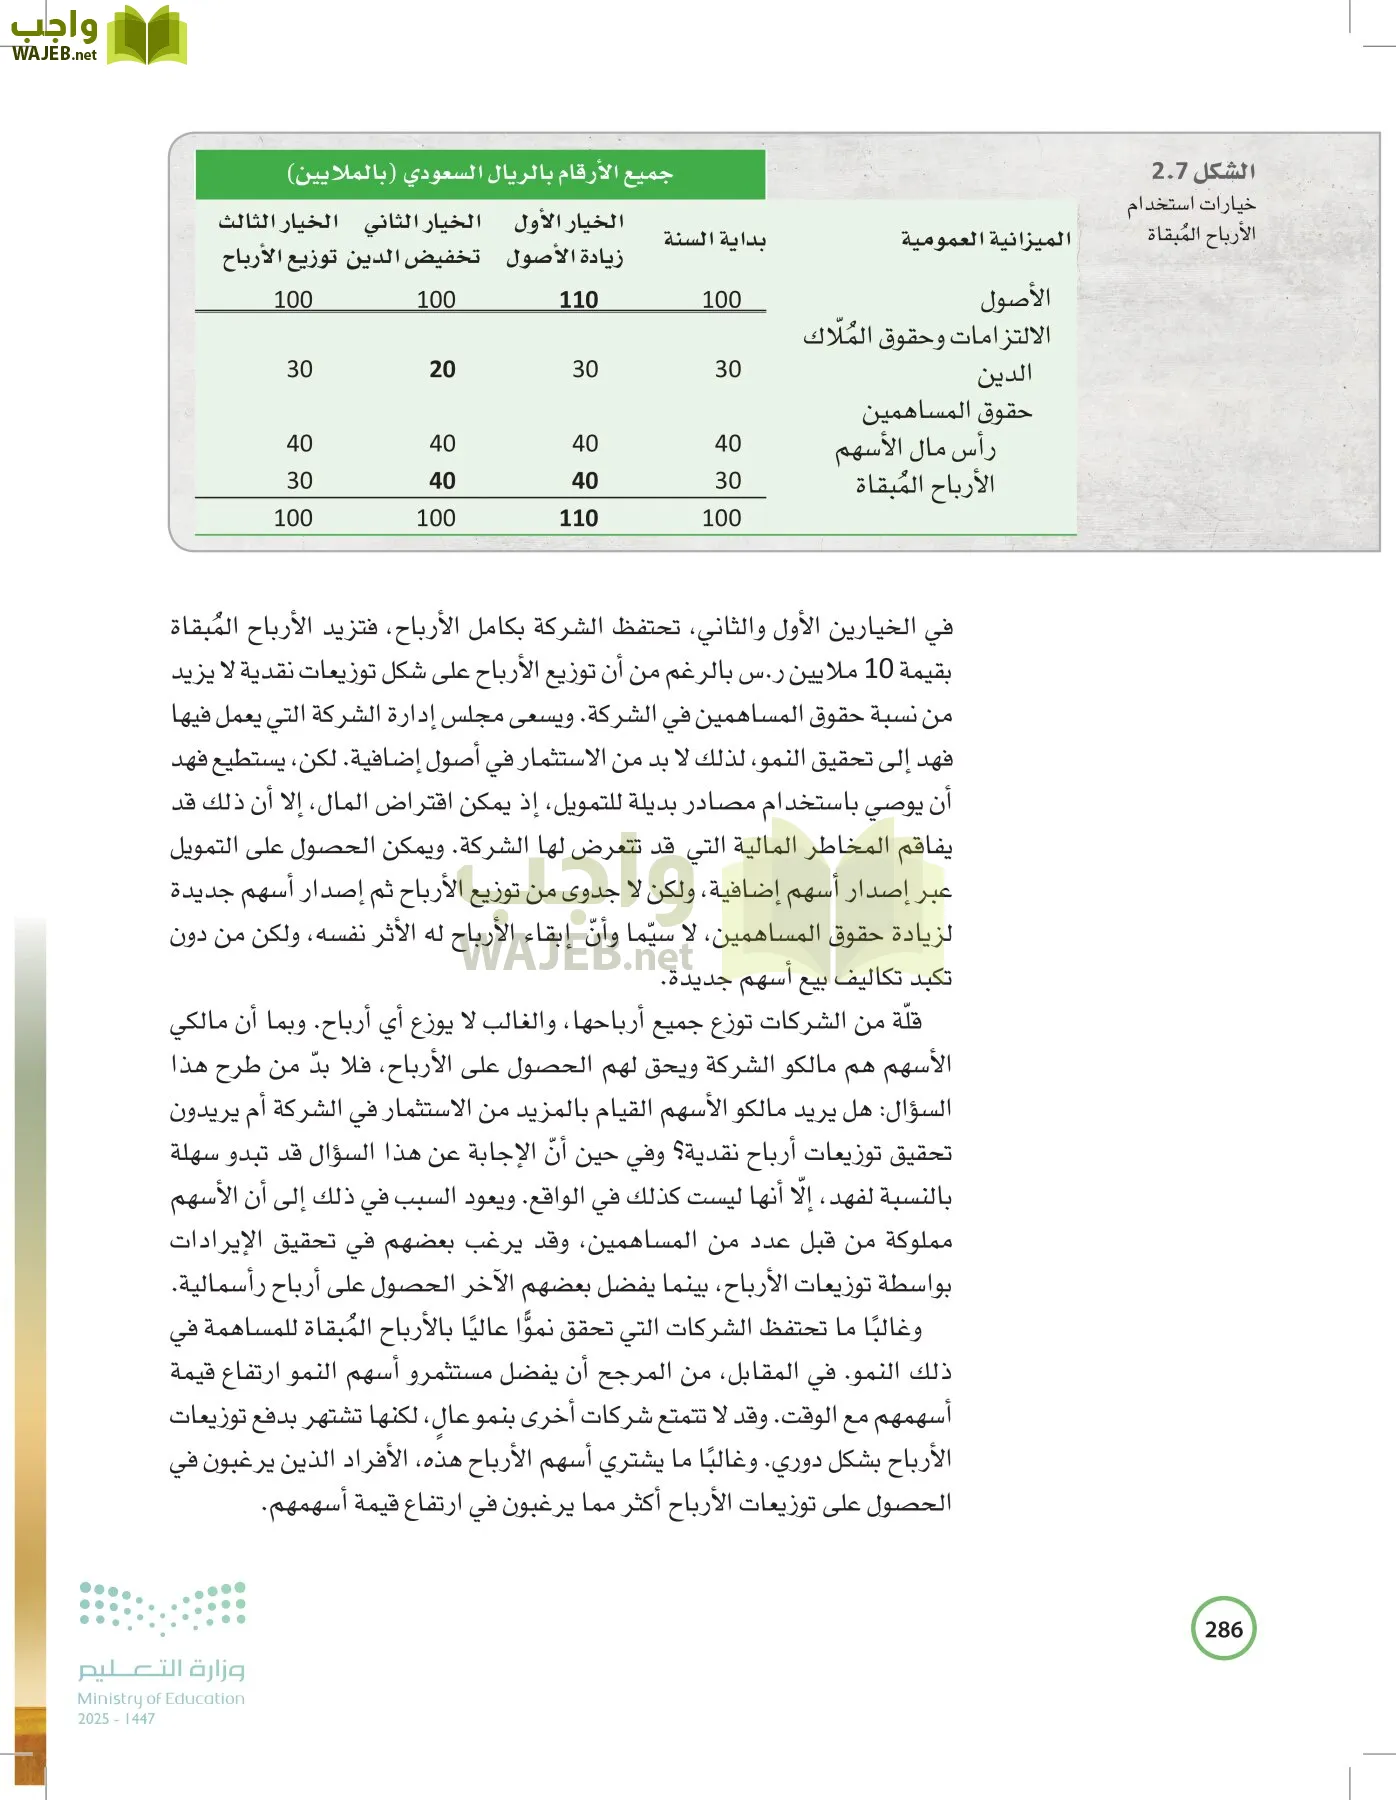 واجب
WAJEB.net
الشكل 2.7
خيارات استخدام
الأرباح المُبقاة
جميع الأرقام بالريال السعودي (بالملايين)
الميزانية العمومية بداية السنة الخيار الأول زيادة الأصول الخيار الثاني تخفيض الدين الخيار الثالث توزيع الأرباح
الأصول 100 110 100 100
الالتزامات وحقوق المُلّاك
الدين 30 30 20 30
حقوق المساهمين
رأس مال الأسهم 40 40 40 40
الأرباح المُبقاة 30 40 40 30
100 110 100 100
في الخيارين الأول والثاني، تحتفظ الشركة بكامل الأرباح، فتزيد الأرباح المُبقاة
بقيمة 10 ملايين ر.س بالرغم من أن توزيع الأرباح على شكل توزيعات نقدية لا يزيد
من نسبة حقوق المساهمين في الشركة. ويسعى مجلس إدارة الشركة التي يعمل فيها
فهد إلى تحقيق النمو، لذلك لا بد من الاستثمار في أصول إضافية. لكن، يستطيع فهد
أن يوصي باستخدام مصادر بديلة للتمويل، إذ يمكن اقتراض المال، إلا أن ذلك قد
يفاقم المخاطر المالية التي قد تتعرض لها الشركة. ويمكن الحصول على التمويل
عبر إصدار أسهم إضافية، ولكن لا جدوى من توزيع الأرباح ثم إصدار أسهم جديدة
لزيادة حقوق المساهمين، لا سيّما وأنّ إبقاء الأرباح له الأثر نفسه، ولكن من دون
تكبد تكاليف بيع أسهم جديدة.
واجب
WAJEB.net
قلّة من الشركات توزع جميع أرباحها، والغالب لا يوزع أي أرباح. وبما أن مالكي
الأسهم هم مالكو الشركة ويحق لهم الحصول على الأرباح، فلا بدّ من طرح هذا
السؤال: هل يريد مالكو الأسهم القيام بالمزيد من الاستثمار في الشركة أم يريدون
تحقيق توزيعات أرباح نقدية؟ وفي حين أنّ الإجابة عن هذا السؤال قد تبدو سهلة
بالنسبة لفهد، إلّا أنها ليست كذلك في الواقع. ويعود السبب في ذلك إلى أن الأسهم
مملوكة من قبل عدد من المساهمين، وقد يرغب بعضهم في تحقيق الإيرادات
بواسطة توزيعات الأرباح، بينما يفضل بعضهم الآخر الحصول على أرباح رأسمالية.
وغالبًا ما تحتفظ الشركات التي تحقق نموًّا عاليًا بالأرباح المُبقاة للمساهمة في
ذلك النمو. في المقابل، من المرجح أن يفضل مستثمرو أسهم النمو ارتفاع قيمة
أسهمهم مع الوقت. وقد لا تتمتع شركات أخرى بنمو عالٍ، لكنها تشتهر بدفع توزيعات
الأرباح بشكل دوري. وغالبًا ما يشتري أسهم الأرباح هذه، الأفراد الذين يرغبون في
الحصول على توزيعات الأرباح أكثر مما يرغبون في ارتفاع قيمة أسهمهم.
286
وزارة التعليم
Ministry of Education
2025 - 1447